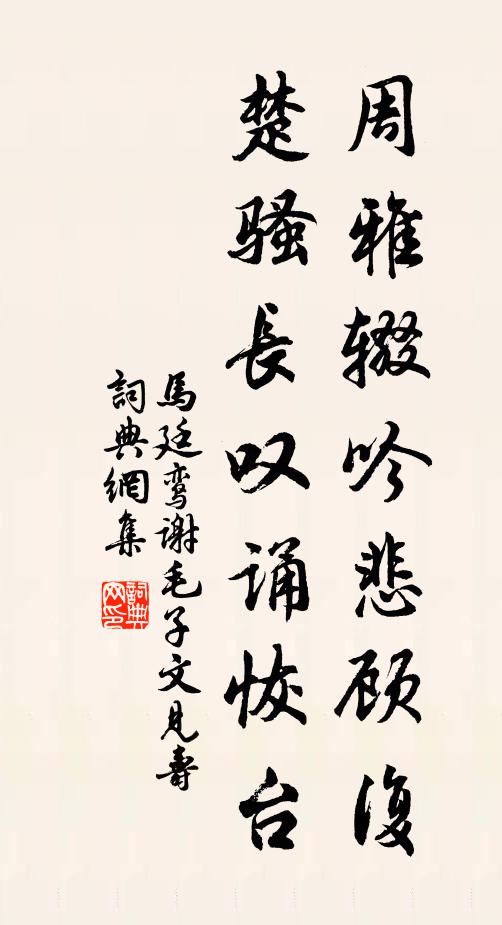 周雅辍吟悲顾復
楚骚長叹诵恢台
馬廷鸾谢毛子文見壽
詞典網集
詞典网印